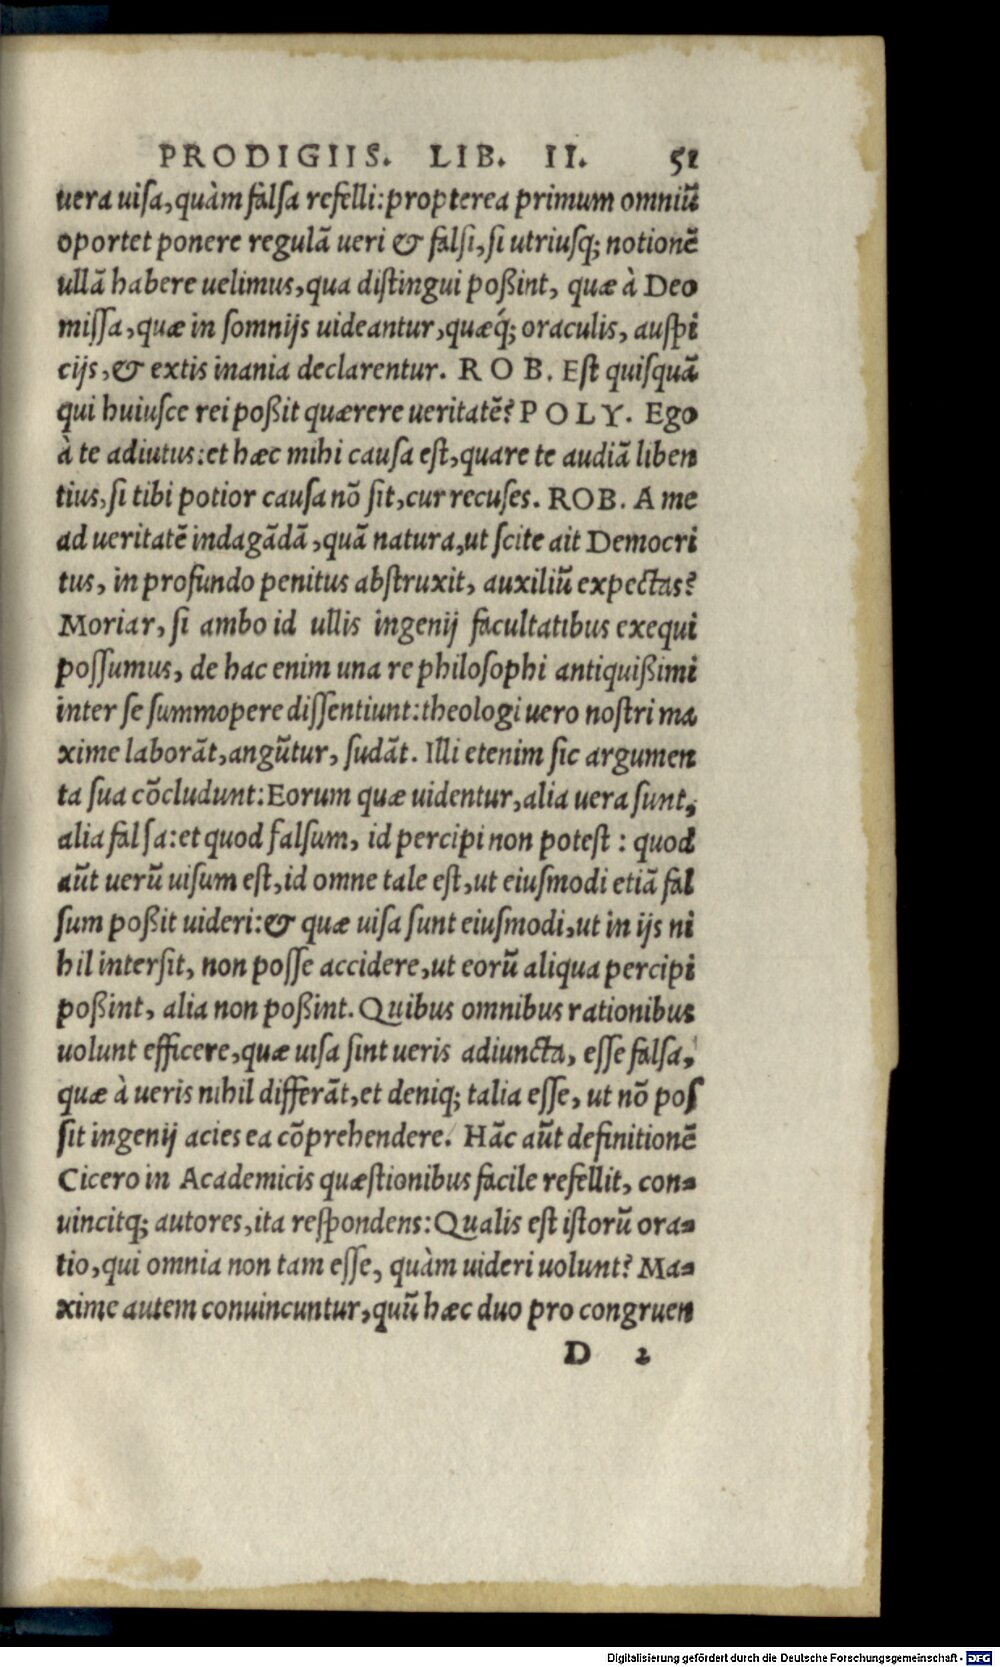 PRODIGIIS. LIB. II. 51
uera uisa, quàm falsa refelli: propterea primum omniū
oportet ponere regulā ueri & falsi, si utriusq; notionē
ullā habere uelimus, qua distingui poßint, quæ à Deo
missa, quæ in somnijs uideantur, quæq́; oraculis, auspi
cijs, & extis inania declarentur. ROB. Est quisquā
qui huiusce rei poßit quærere ueritatē? POLY. Ego
à te adiutus: et hæc mihi causa est, quare te audiā liben
tius, si tibi potior causa nō sit, cur recuses. ROB. A me
ad ueritatē indagādā, quā natura, ut scite ait Democri
tus, in profundo penitus abstruxit, auxiliū expectas?
Moriar, si ambo id ullis ingenij facultatibus exequi
possumus, de hac enim una re philosophi antiquißimi
inter se summopere dissentiunt: theologi uero nostri ma
xime laborāt, angūtur, sudāt. Illi etenim sic argumen
ta sua cōcludunt: Eorum quæ uidentur, alia uera sunt,
alia falsa: et quod falsum, id percipi non potest: quod
aūt uerū uisum est, id omne tale est, ut eiusmodi etiā fal
sum poßit uideri: & quæ uisa sunt eiusmodi, ut in ijs ni
hil intersit, non posse accidere, ut eorū aliqua percipi
poßint, alia non poßint. Quibus omnibus rationibus
uolunt efficere, quæ uisa sint ueris adiuncta, esse falsa,
quæ à ueris nihil differāt, et deniq; talia esse, ut nō pos
sit ingenij acies ea cōprehendere. Hāc aūt definitionē
Cicero in Academicis quæstionibus facile refellit, con-
uincitq; autores, ita respondens: Qualis est istorū ora-
tio, qui omnia non tam esse, quàm uideri uolunt? Ma-
xime autem conuincuntur, quū hæc duo pro congruen
D 2
Digitalisierung gefördert durch die Deutsche Forschungsgemeinschaft - DFG